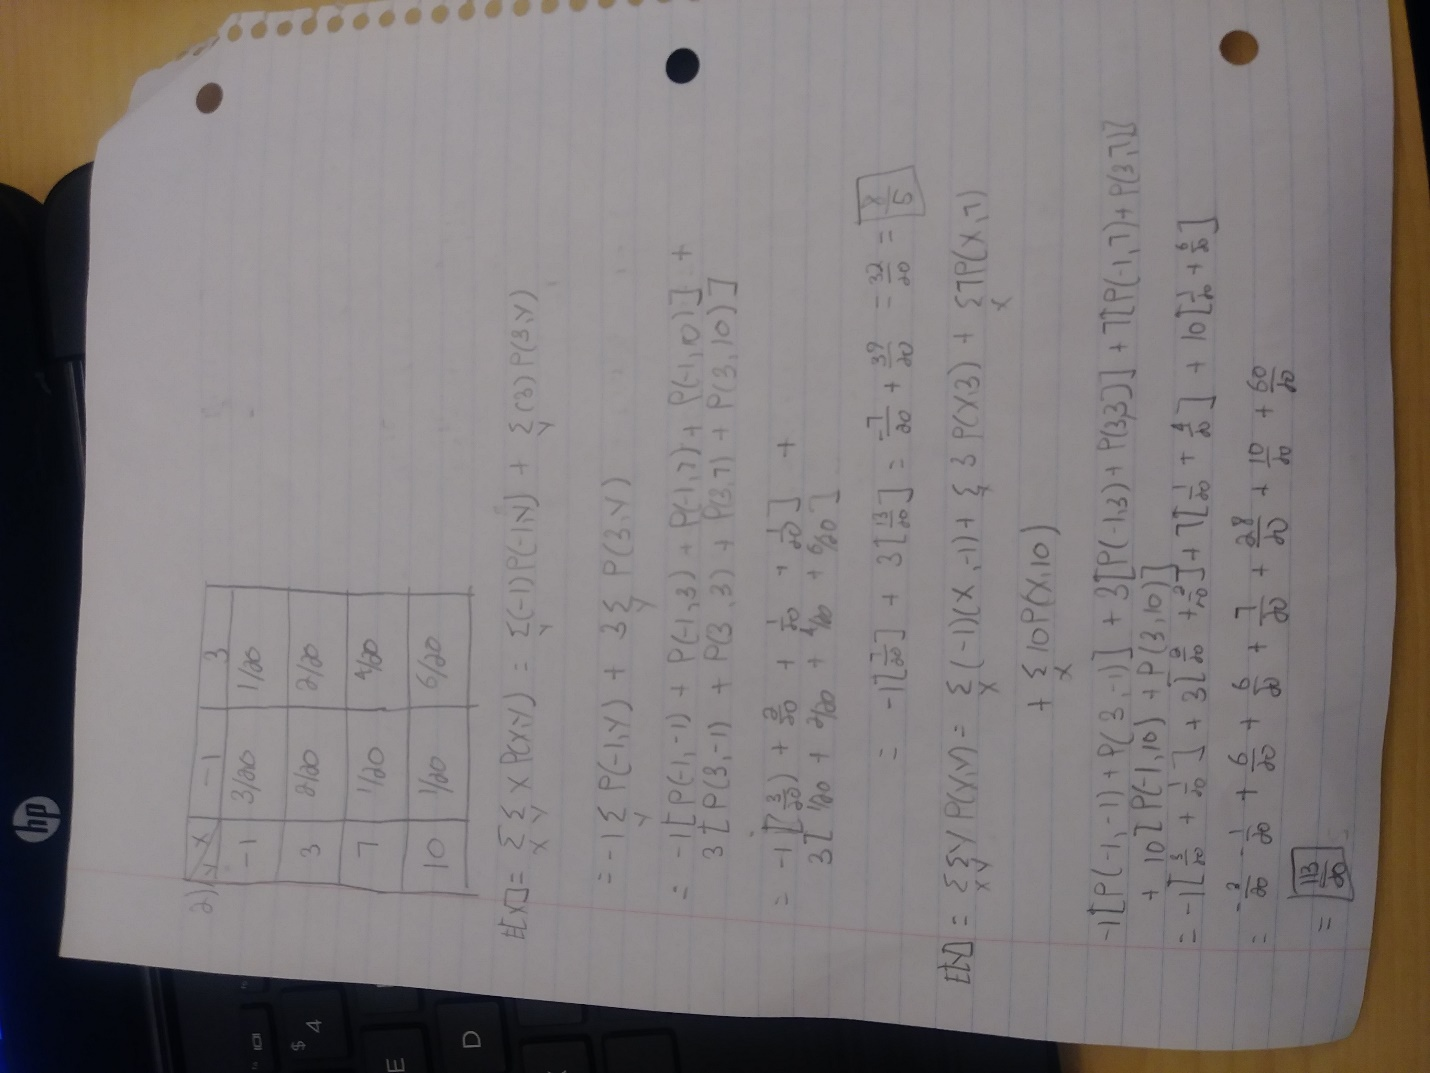 2)
Y\X | -1 | 3
-1 | 3/20 | 1/20
3 | 2/20 | 2/20
7 | 1/20 | 4/20
10 | 1/20 | 6/20
E[X] = Σx Σy X P(X,Y) = Σy (-1)P(-1,Y) + Σy (3)P(3,Y)
= -1 Σy P(-1,Y) + 3 Σy P(3,Y)
= -1[P(-1,-1) + P(-1,3) + P(-1,7) + P(-1,10)] +
3[P(3,-1) + P(3,3) + P(3,7) + P(3,10)]
= -1[(3/20) + 2/20 + 1/20 + 1/20] +
3[1/20 + 2/20 + 4/20 + 6/20]
= -1[7/20] + 3[13/20] = -7/20 + 39/20 = 32/20 = 8/5
E[Y] = Σx Σy Y P(X,Y) = Σx (-1)(X,-1) + Σx 3 P(X,3) + Σx 7P(X,7)
+ Σx 10P(X,10)
-1[P(-1,-1) + P(3,-1)] + 3[P(-1,3) + P(3,3)] + 7[P(-1,7) + P(3,7)]
+ 10[P(-1,10) + P(3,10)]
= -1[3/20 + 1/20] + 3[2/20 + 2/20] + 7[1/20 + 4/20] + 10[1/20 + 6/20]
= -3/20 - 1/20 + 6/20 + 6/20 + 7/20 + 28/20 + 10/20 + 60/20
= 113/20
hp
$
4
E
D